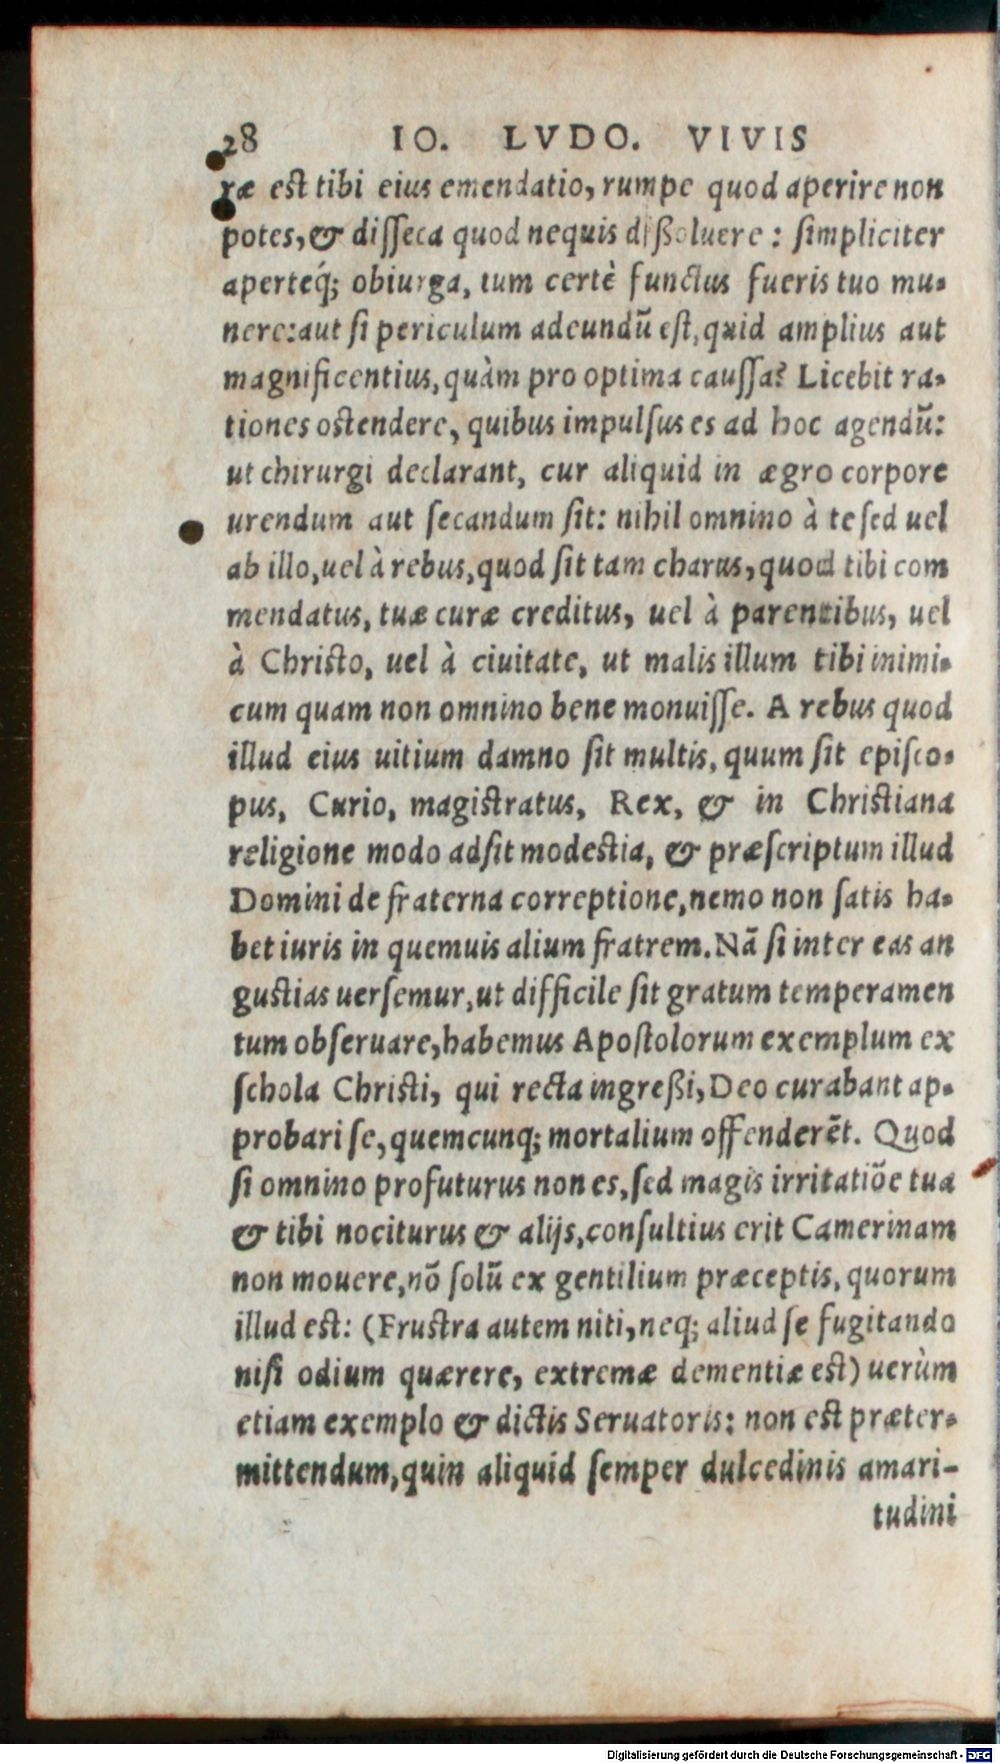 28 IO. LVDO. VIVIS
ræ est tibi eius emendatio, rumpe quod aperire non
potes, & disseca quod nequis dißoluere: simpliciter
aperteq́; obiurga, tum certè functus fueris tuo mu-
nere: aut si periculum adeundũ est, quid amplius aut
magnificentius, quàm pro optima caussa? Licebit ra-
tiones ostendere, quibus impulsus es ad hoc agendũ:
ut chirurgi declarant, cur aliquid in ægro corpore
urendum aut secandum sit: nihil omnino à te sed uel
ab illo, uel à rebus, quod sit tam charus, quod tibi com
mendatus, tuæ curæ creditus, uel à parentibus, uel
à Christo, uel à ciuitate, ut malis illum tibi inimi-
cum quam non omnino bene monuisse. A rebus quod
illud eius uitium damno sit multis, quum sit episco-
pus, Curio, magistratus, Rex, & in Christiana
religione modo adsit modestia, & præscriptum illud
Domini de fraterna correptione, nemo non satis ha-
bet iuris in quemuis alium fratrem. Nã si inter eas an
gustias uersemur, ut difficile sit gratum temperamen
tum obseruare, habemus Apostolorum exemplum ex
schola Christi, qui recta ingreßi, Deo curabant ap-
probari se, quemcunq; mortalium offenderẽt. Quod
si omnino profuturus non es, sed magis irritatiõe tua
& tibi nociturus & alijs, consultius erit Camerinam
non mouere, nõ solũ ex gentilium præceptis, quorum
illud est: (Frustra autem niti, neq; aliud se fugitando
nisi odium quærere, extremæ dementiæ est) uerùm
etiam exemplo & dictis Seruatoris: non est præter-
mittendum, quin aliquid semper dulcedinis amari-
tudini
Digitalisierung gefördert durch die Deutsche Forschungsgemeinschaft - DFG